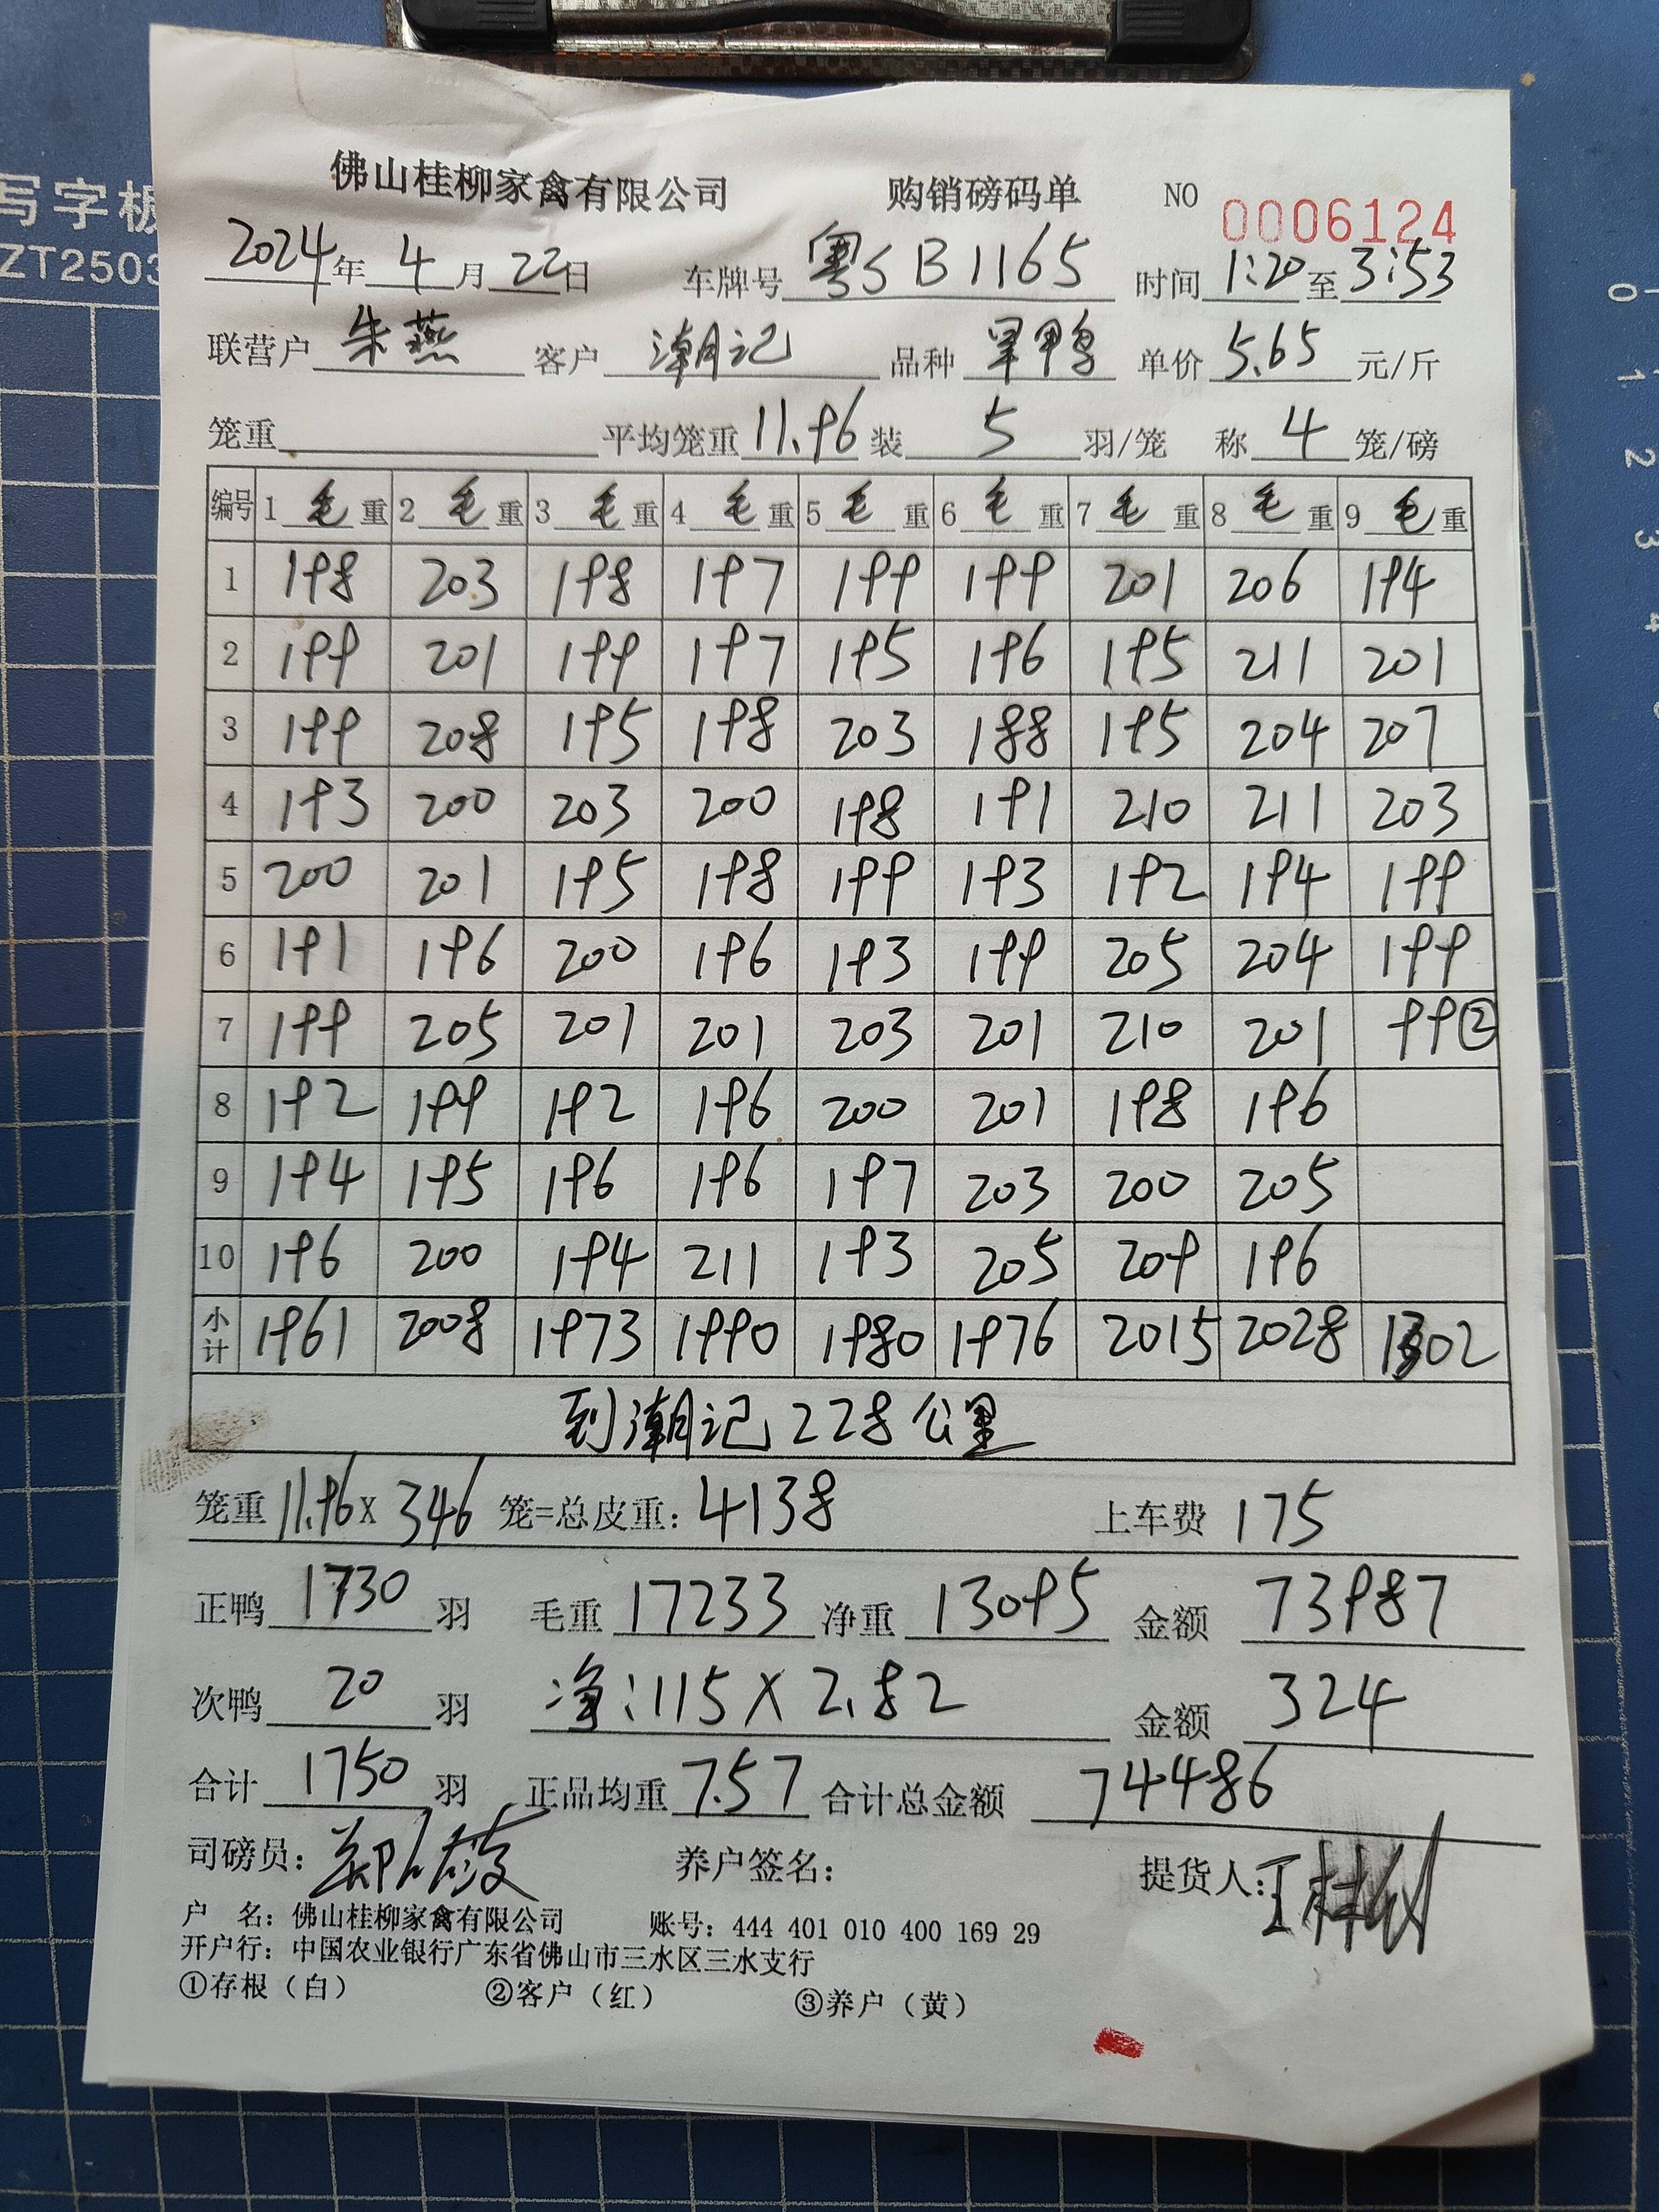 写字板
ZT2503
佛山桂柳家禽有限公司 购销磅码单 NO 0006124
2024年 4月 22日 车牌号 粤SB1165 时间 1:20 至 3:53
联营户 朱燕 客户 潮记 品种 旱鸭 单价 5.65 元/斤
笼重 平均笼重 11.96 装 5 羽/笼 称 4 笼/磅
编号 1 毛 重 2 毛 重 3 毛 重 4 毛 重 5 毛 重 6 毛 重 7 毛 重 8 毛 重 9 毛 重
1 198 203 198 197 199 199 201 206 194
2 199 201 199 197 195 196 195 211 201
3 199 208 195 198 203 188 195 204 207
4 193 200 203 200 198 191 210 211 203
5 200 201 195 198 199 193 192 194 199
6 191 196 200 196 193 199 205 204 199
7 199 205 201 201 203 201 210 201 99②
8 192 199 192 196 200 201 198 196
9 194 195 196 196 197 203 200 205
10 196 200 194 211 193 205 209 196
小计 1961 2008 1973 1990 1980 1976 2015 2028 1302
到潮记228公里
笼重 11.96 X 346 笼=总皮重: 4138 上车费 175
正鸭 1730 羽 毛重 17233 净重 13095 金额 73987
次鸭 20 羽 净:115 X 2.82 金额 324
合计 1750 羽 正品均重 7.57 合计总金额 74486
司磅员: 养户签名: 提货人:
户 名: 佛山桂柳家禽有限公司 账号: 444 401 010 400 169 29
开户行: 中国农业银行广东省佛山市三水区三水支行
①存根（白） ②客户（红） ③养户（黄）
0
1
2
3
4